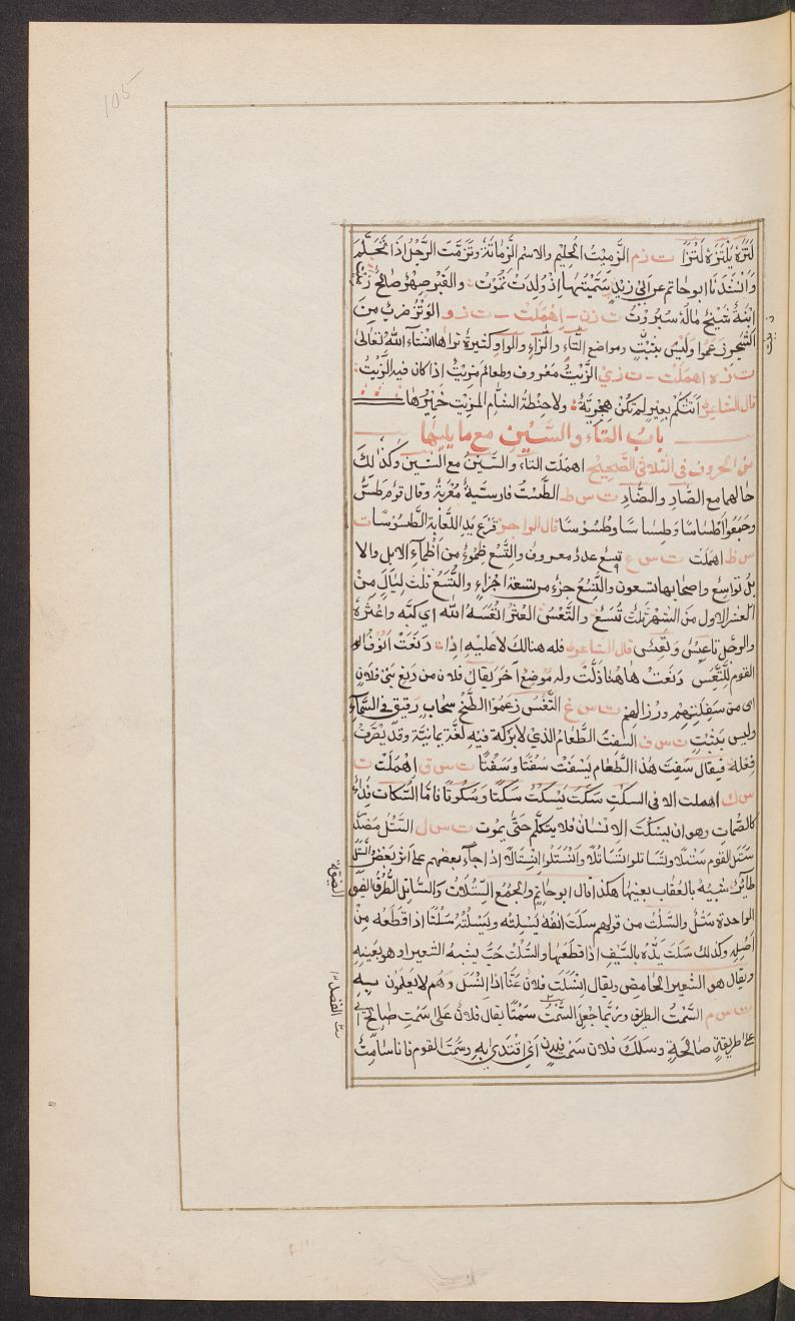 105
لَتَزَهُ يَلتَزُهُ لَتْزًا ت ز م الزِّمِّيْتُ الحَلِيْم والاسم الزَّمَاتَةُ وتَزَمَّتَ الرَّجُلُ اذَا تَحَلَّمَ
وَانْشَدَنَا ابوحاتم عن ابي زيدٍ سَمَّيْتُهَا اِذْ وُلِدَتْ تَمُوْتُ والقَبْرُ صِهْرٌ ضَامِنٌ زِمِّيْتُ
اِبْنَةُ شَيْخٍ مَالَهُ سُبْرُوْتُ ت ز ن اهملت ت ز و الوَتْزُ ضربٌ مِنَ
الشَّجَر زعَمُوا وليْسَ بثَبْتٍ ومواضع التَّاءِ والزَّاءِ والوَاوِ كثيرةٌ تراها انشاءَ اللهُ تعَالى
ت ز ه اهملت ت ز ي الزَّيْتُ مَعْروف وطعام مزيْتٌ اذا كان فيه الزَّيْتُ
قال الشاعر اَتَتْكُم بعِيْرٍ لم تكُنْ هجَرِيَّةً ولا حِنْطَة الشَّام المزيْتِ خَمِيْرُهَا
بابُ التاء والسِّيْن مع ما يليْها
من الحروف في الثلاثي الصَّحِيح اهمَلت التاءُ والسِّيْنُ مع الشين وكذلك
حالهما مع الصَّادِ والضَّادِ ت س ط الطَّسْتُ فارسيَّةٌ مُعْرَبة وقال قومٌ طَسٌّ
وجَمَعُوا طَسَاسًا وطِسَاسًا وطُسُوْسًا قال الراجز قَرْعَ يَدِ اللَّعَّابَةِ الطُّسُوْسَا ت
س ظ اهملت ت س ع تسع عددٌ معروفٌ والتِّسْع ظِموٌ من اَظمَاءِ الابل والا
بلُ تواسِعُ واصحابها تسعون والتُّسْعُ جزءٌ من تسعة اجزاءٍ والتُّسَعُ ثلثُ لَيالٍ مِنْ
العشر الاول من الشهر ثلثٌ تُسَعٌ والتَّعْسُ العثْرُ اتعَسَهُ الله اي كبَّه واعْثَرَهُ
والرجُل تاعِسٌ وتَعِسٌ قال الشاعر فله هنالك لا عليْهِ اِذا دَنَعَتْ اُنُوْفُ
القوم لِلتَّعَسِ دَنعَتْ هاهُنا ذَلَّتْ وله مَوضِعٌ آخر يقالُ فلان من دَنَعِ بني فلانٍ
اي من سَفِلَتِهِم ورُذالهِم ت س غ التَّغْسُ زعَمُوا لطْخُ سَحَابٍ رقيقٍ في السَّمَاءِ
وليس بثَبْتٍ ت س ف السفتُ الطَّعَامُ الذي لا بَرَكة فيهِ لغَةٌ يمانيَّة وقد يُصَرَّفُ
فِعْلهُ فيقال سَفِتَ هٰذا الطَّعَام يَسْفَتُ سَفَتًا وسَفْتًا ت س ق اهْمَلتْ ت
س ك اهملت الا في السكتِ سَكتَ يَسْكُتُ سَكْتًا وسُكُوتًا فامَّا السُّكَات فدَاءٌ
كالصُّمَاتِ وهو ان يسْكُتَ الانسَان فلا يتكلَّم حتَّى يموت ت س ل السَّتْلُ مَصْدَر
سَتَلَ القوم سَتْلًا وتسَاتلوا تسَاتُلًا وانْسَتَلوا انسِتَالًا اذا جآءَ بعضهم على اثرِ بَعْضٍ السُّتَلُ
طَآئِرٌ شَبِيْهٌ بالعُقَابِ بعينِهَا هكذا قال ابوحاتم والجمْعُ السِّتْلَانُ والسَّاتِلُ الطُّرُقُ الضيّق
الضيّقة
الواحدة سَتَلٌ والسَّلْتُ من قولهم سَلَتَ انفَهُ يَسْلِتُه ويَسْلُتُهُ سَلْتًا اذا قطَعَهُ مِنْ
اَصْلِهِ وكذلك سَلَتَ يَدَهُ بالسَّيْفِ اذا قطَعَهَا والسُّلْتُ حَبٌّ يشبهُ الشعيرَ او هو بعَيْنِهِ
ويقال هو الشَّعِيْر الحَامِضُ ويقال اِنْسَلَتَ فلانٌ عنَّا اذا انسَلَّ وهُم لا يَعْلَمُونَ بهِ
ت س م السَّمْتُ الطريق وربَّما جُعِلَ السَّمْتُ سَمْتًا يقال فلانٌ عَلى سَمْتٍ صَالِحٍ اي
عَلى طَرِيقةٍ صَالحَةٍ وسلَكَ فلان سَمْتَ فلانٍ اَيْ اقتَدَى بهِ وسَمَتَ القوم فانا سَامِتٌ